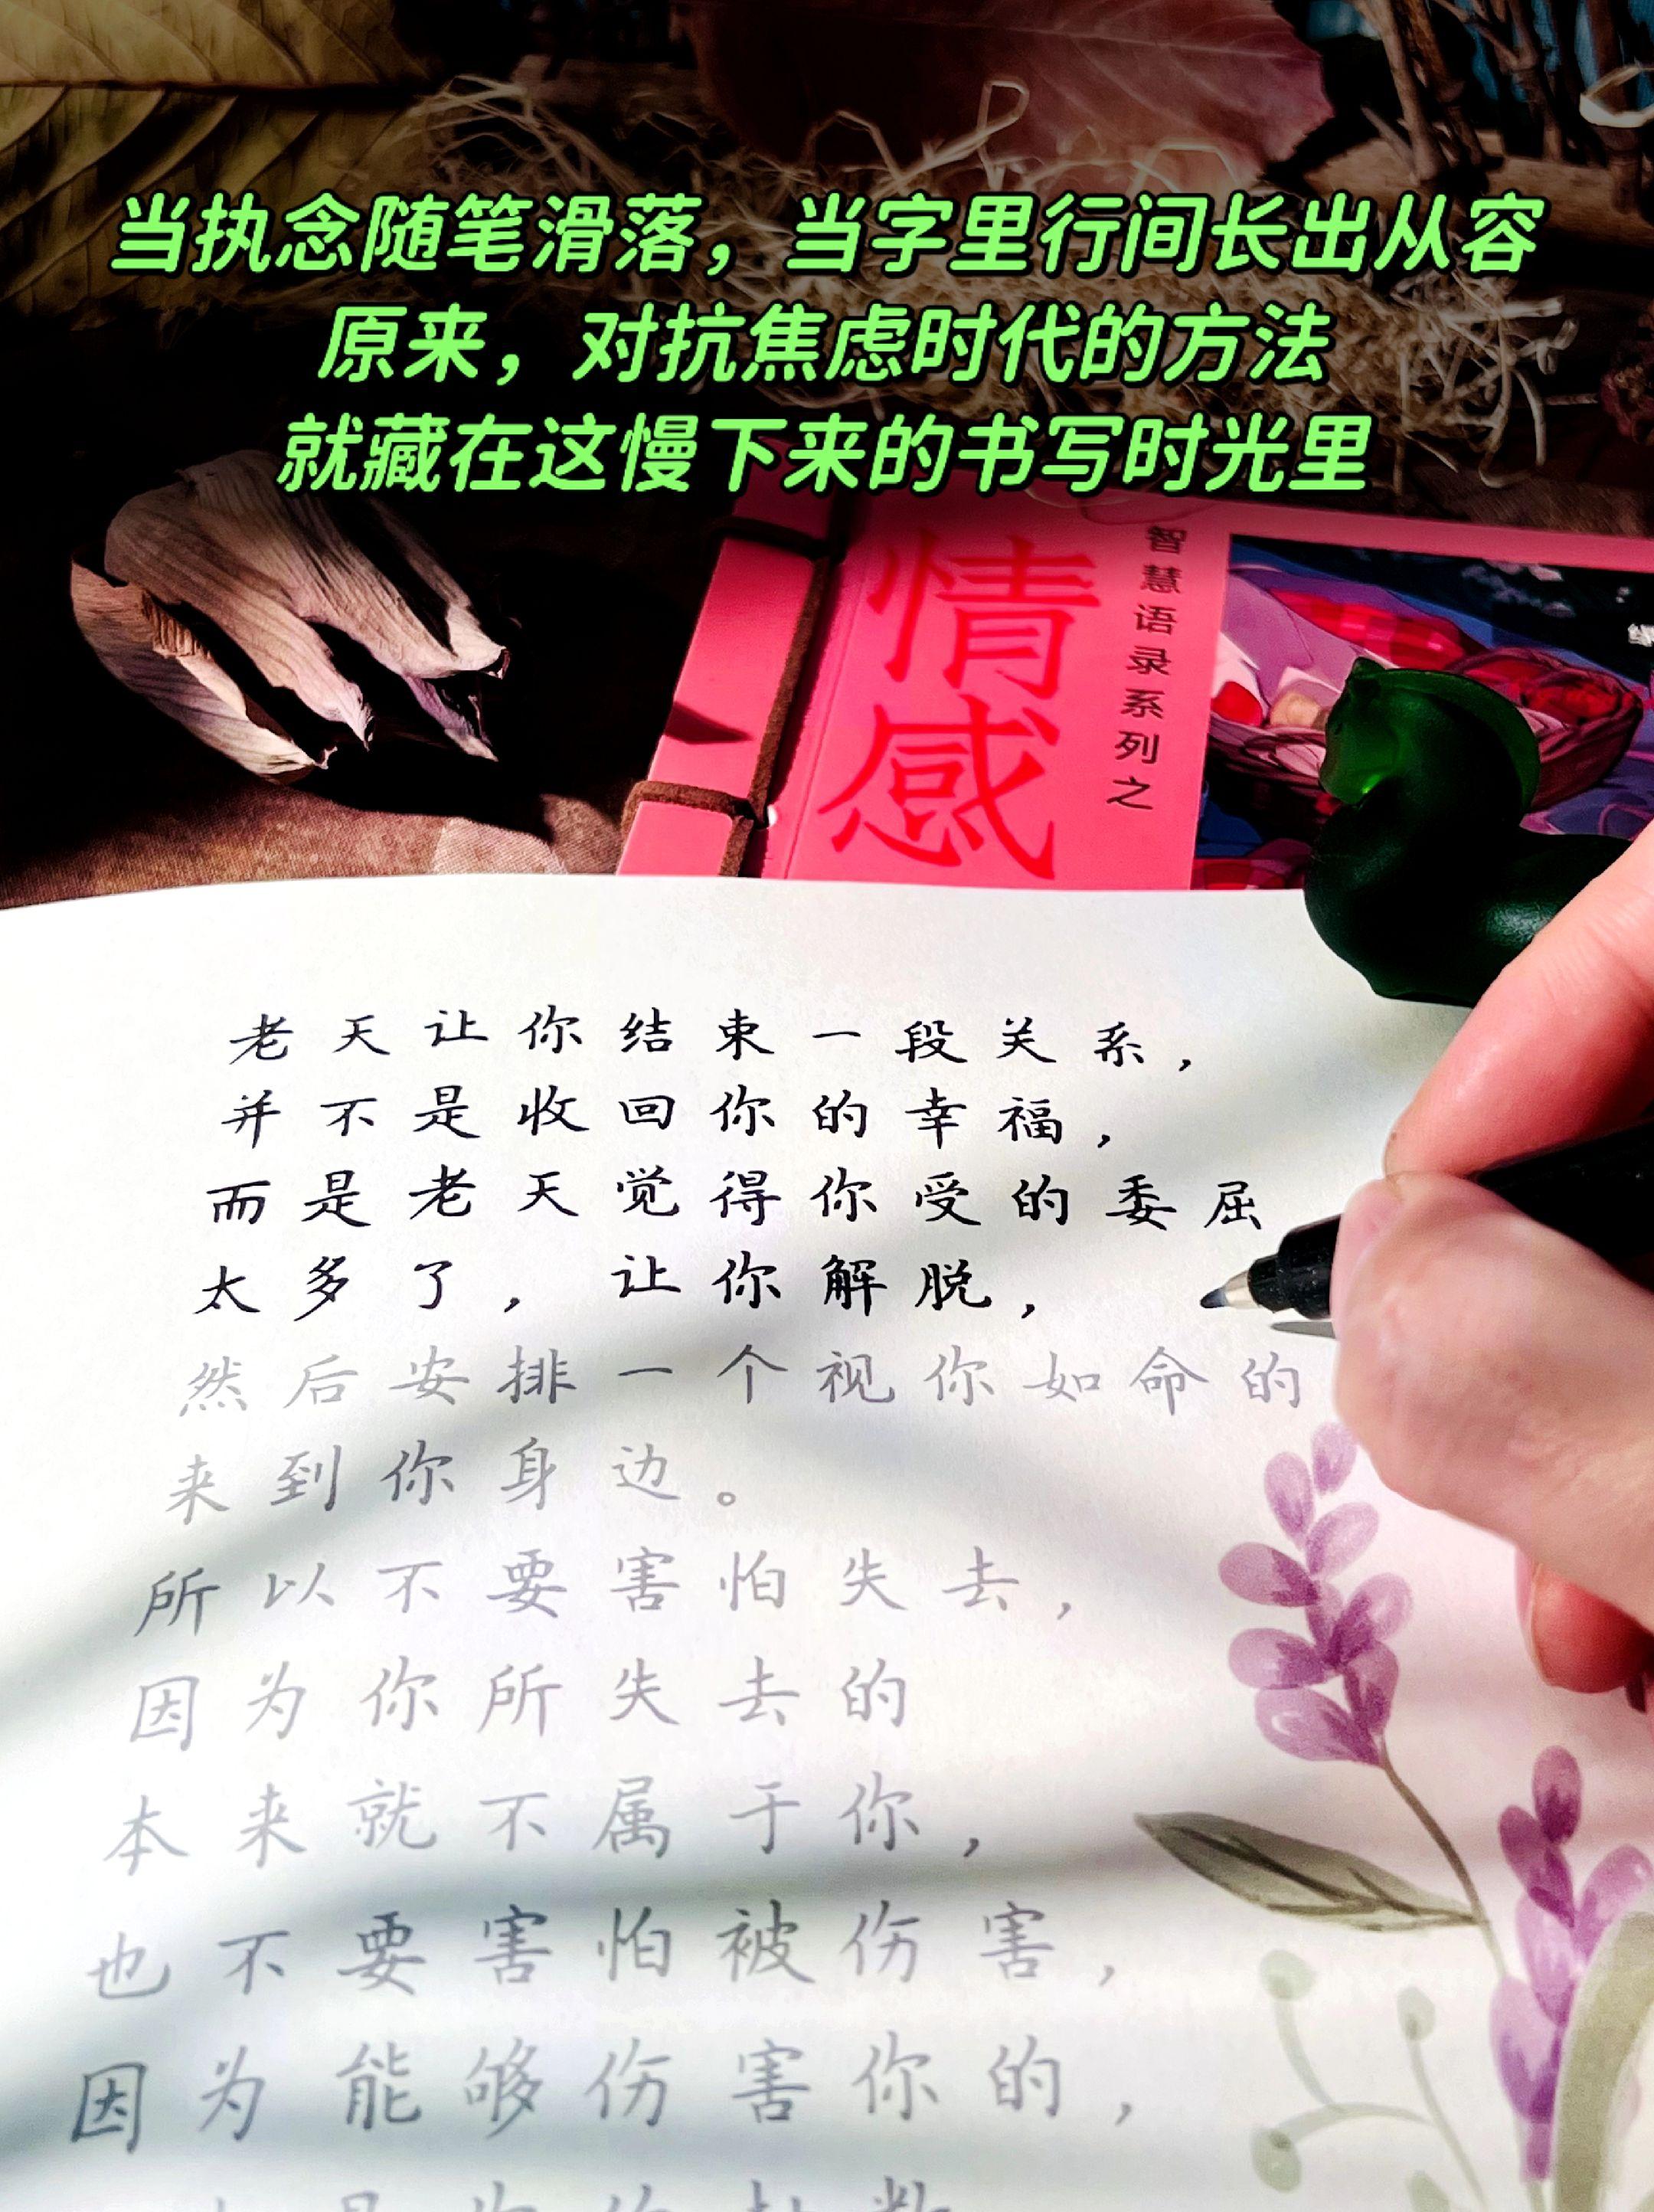 当执念随笔滑落，当字里行间长出从容
原来，对抗焦虑时代的方法
就藏在这慢下来的书写时光里
情感
智慧语录系列之
老天让你结束一段关系，
并不是收回你的幸福，
而是老天觉得你受的委屈
太多了，让你解脱，
然后安排一个视你如命的
来到你身边。
所以不要害怕失去，
因为你所失去的
本来就不属于你，
也不要害怕被伤害，
因为能够伤害你的，